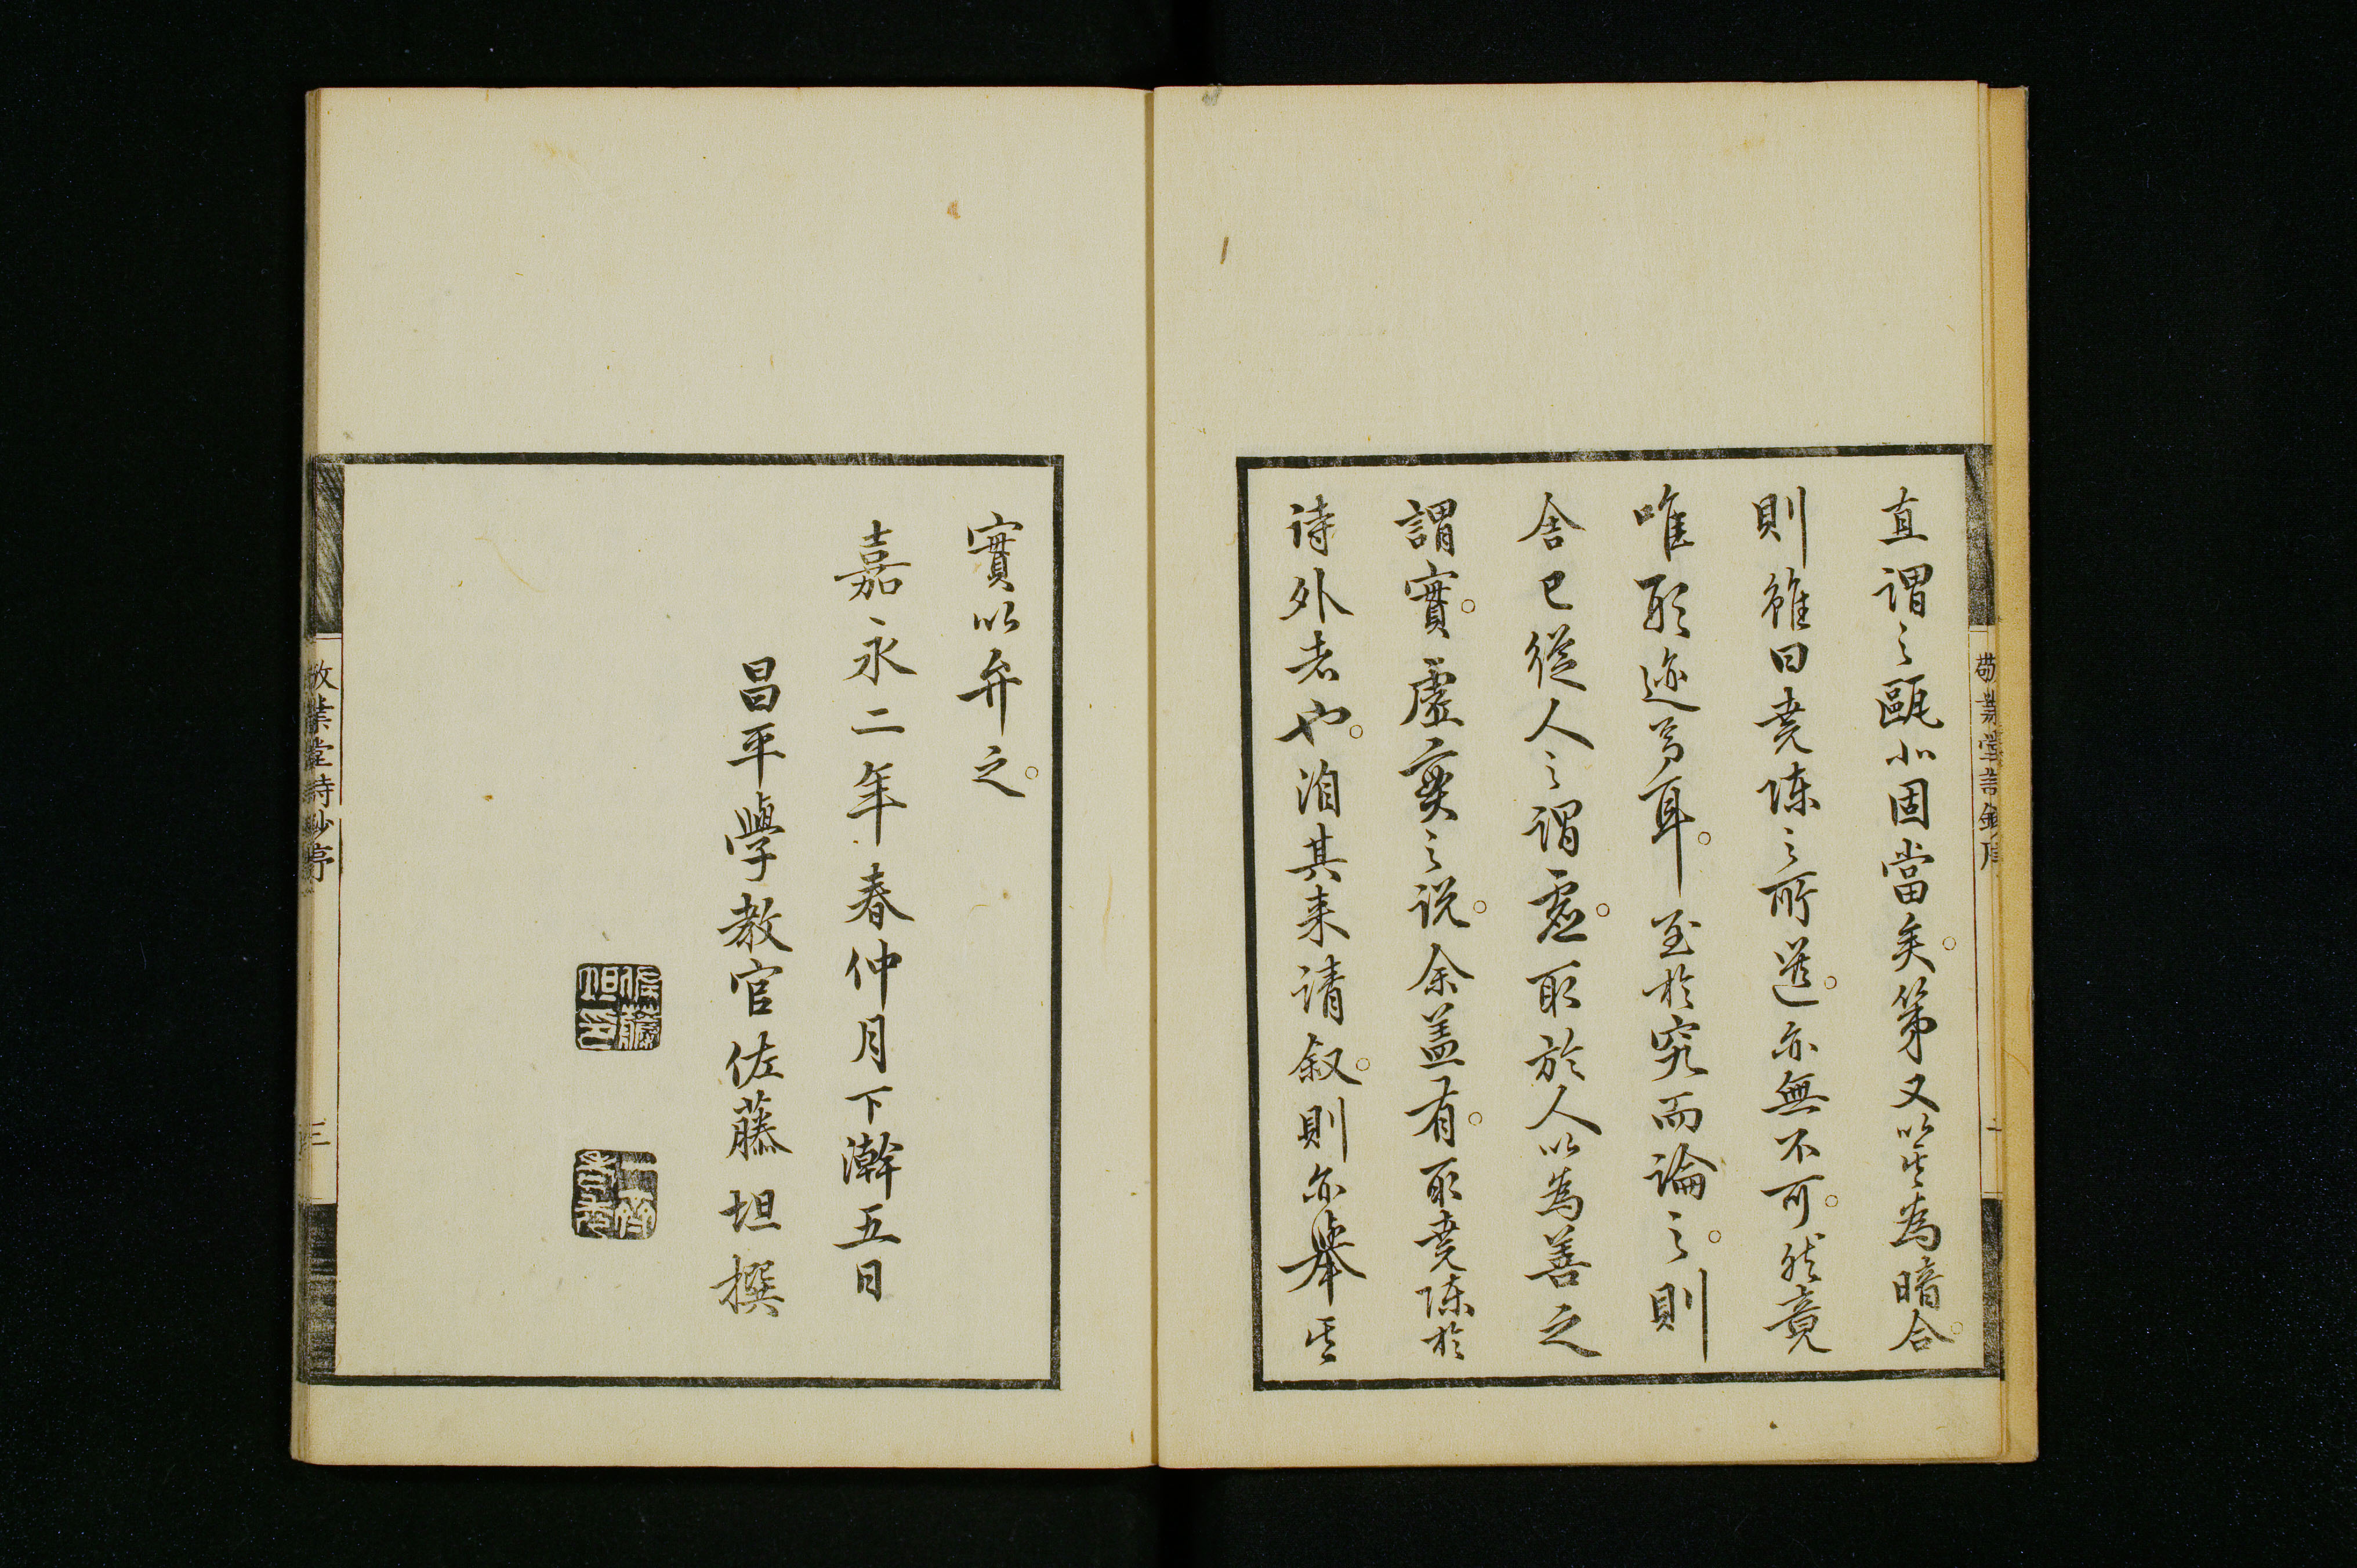 敬業堂詩鈔序 二
直謂之甌北固當矣。第又以其為暗合。
則雖曰堯陳之所選。亦無不可。然竟
唯形迹耳。至於究而論之。則
舍己從人之謂虛。取於人以為善之
謂實。虛實之說。余蓋有。取堯陳於
詩外者也。洎其来請叙。則亦舉其
實以弁之。
嘉永二年春仲月下澣五日
昌平學教官佐藤坦撰
佐藤坦印
一齋
敬業堂詩鈔序 三